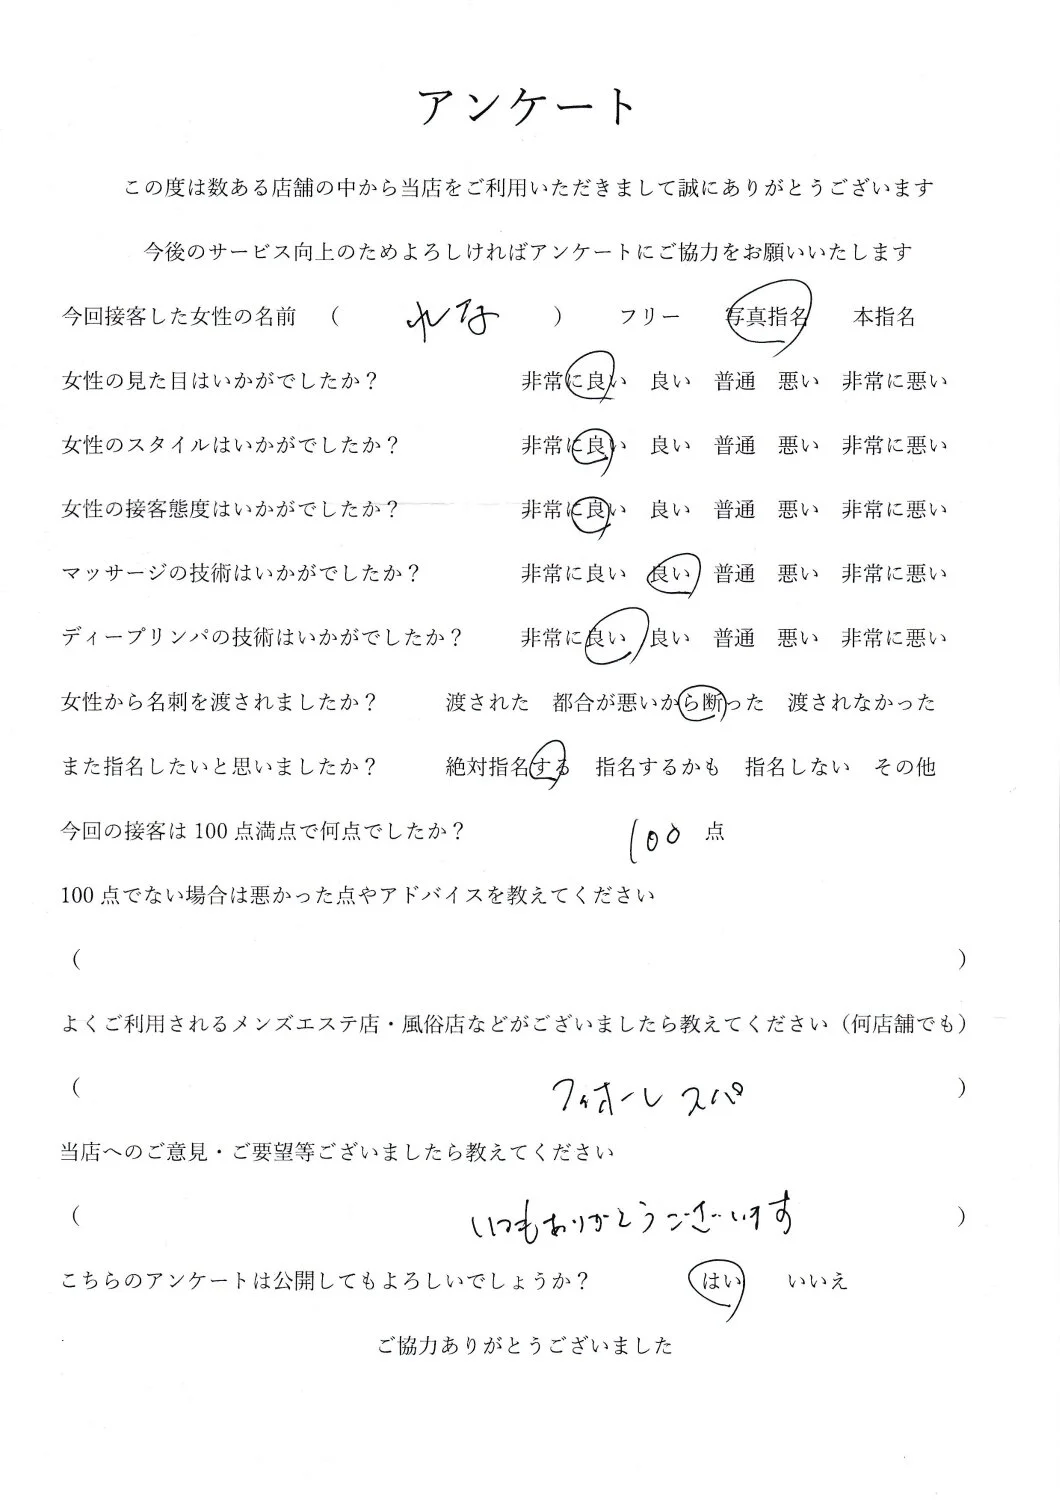 アンケート
この度は数ある店舗の中から当店をご利用いただきまして誠にありがとうございます
今後のサービス向上のためよろしければアンケートにご協力をお願いいたします
今回接客した女性の名前 （ れな ） フリー 写真指名 本指名
女性の見た目はいかがでしたか？ 非常に良い 良い 普通 悪い 非常に悪い
女性のスタイルはいかがでしたか？ 非常に良い 良い 普通 悪い 非常に悪い
女性の接客態度はいかがでしたか？ 非常に良い 良い 普通 悪い 非常に悪い
マッサージの技術はいかがでしたか？ 非常に良い 良い 普通 悪い 非常に悪い
ディープリンパの技術はいかがでしたか？ 非常に良い 良い 普通 悪い 非常に悪い
女性から名刺を渡されましたか？ 渡された 都合が悪いから断った 渡されなかった
また指名したいと思いましたか？ 絶対指名する 指名するかも 指名しない その他
今回の接客は 100 点満点で何点でしたか？ 100 点
100 点でない場合は悪かった点やアドバイスを教えてください
（ ）
よくご利用されるメンズエステ店・風俗店などがございましたら教えてください（何店舗でも）
（ フィオーレ スパ ）
当店へのご意見・ご要望等ございましたら教えてください
（ いつもありがとうございます ）
こちらのアンケートは公開してもよろしいでしょうか？ はい いいえ
ご協力ありがとうございました